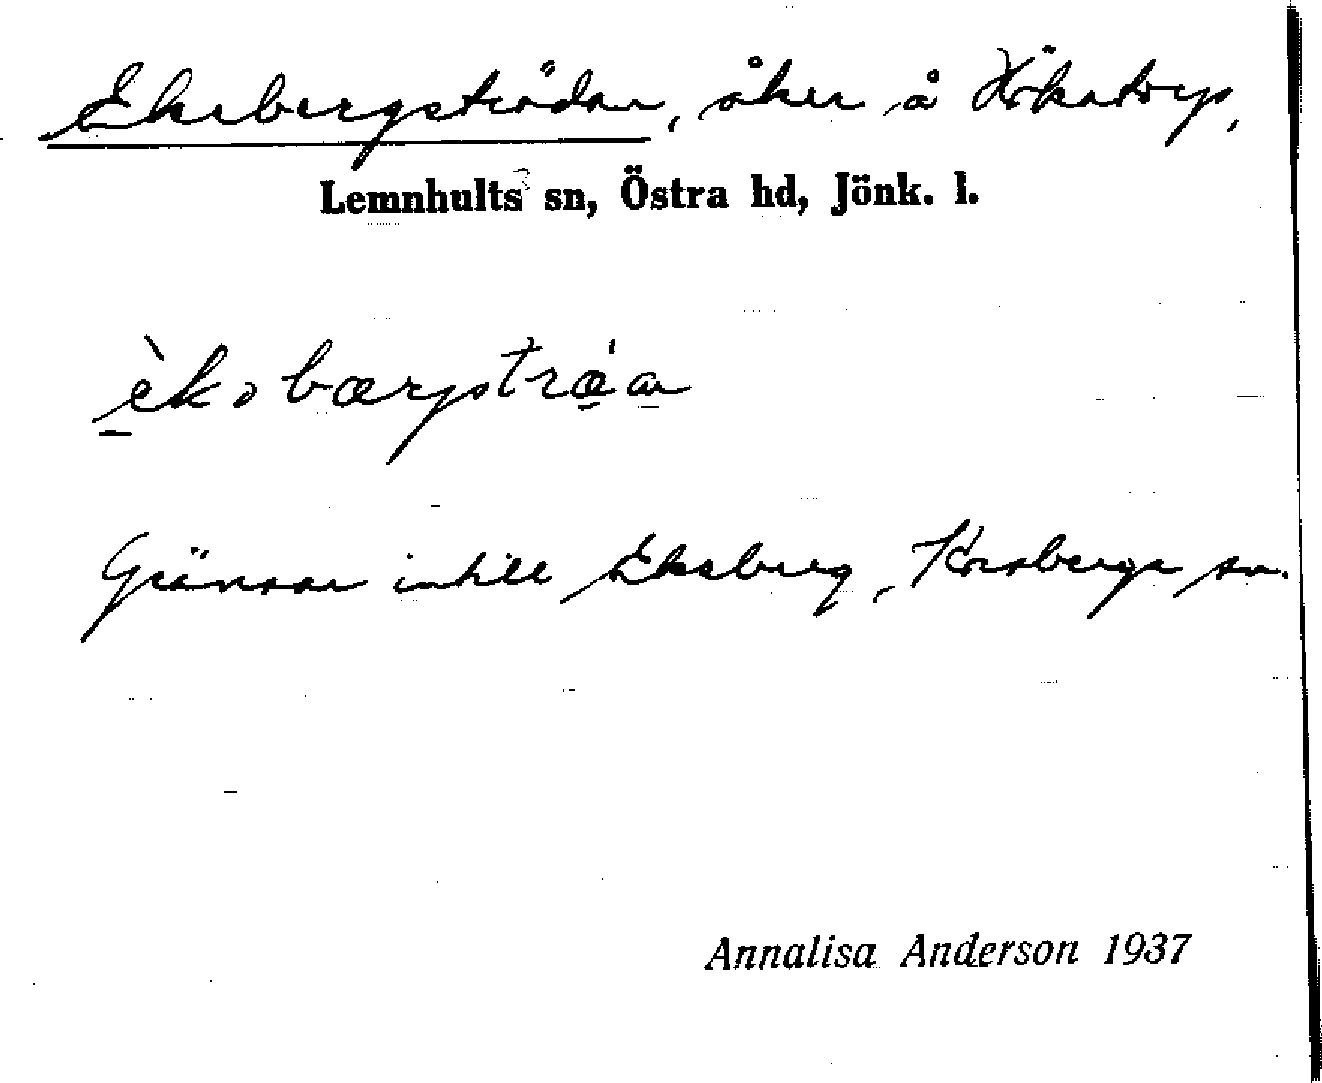 Eksbergsträdan, åker å Hökatorp,
Lemnhults sn, Östra hd, Jönk. l.
Gränsar intill Eksberg, Korsberga sn.
Annalisa Anderson 1937